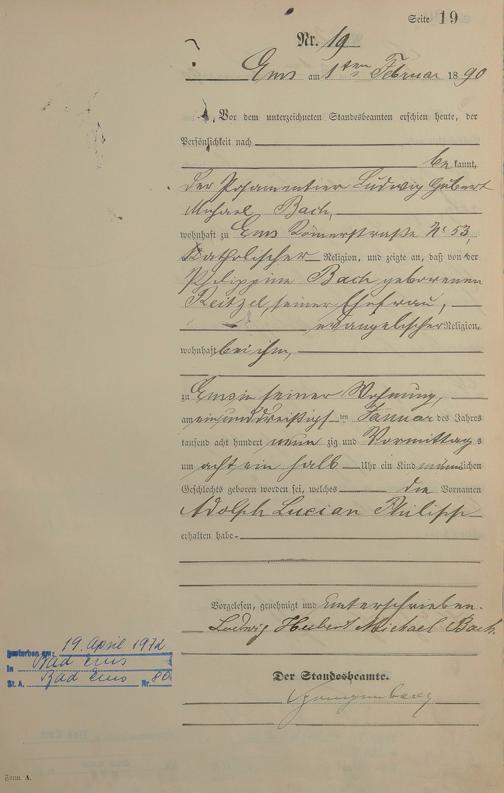 Seite 19
Nr. 19
Ems am 1ten Februar 1890
Vor dem unterzeichneten Standesbeamten erschien heute, der
Persönlichkeit nach
bekannt,
der Posamentier Ludwig Hubert
Michael Bach,
wohnhaft zu Ems Römerstraße No 53,
Katholischer Religion, und zeigte an, daß von der
Philippine Bach geborenen
Reitzel, seiner Ehefrau,
evangelischer Religion,
wohnhaft bei ihm,
zu Ems in seiner Wohnung,
am einunddreißigsten Januar des Jahres
tausend acht hundert neunzig und Vormittags
um acht ein halb Uhr ein Kind männlichen
Geschlechts geboren worden sei, welches die Vornamen
Adolph Lucian Philipp
erhalten habe.
Vorgelesen, genehmigt und unterschrieben.
Ludwig Hubert Michael Bach
Der Standesbeamte.
gestorben am: 19. April 1972
in Bad Ems
St. A. Bad Ems Nr. 80
Form. A.